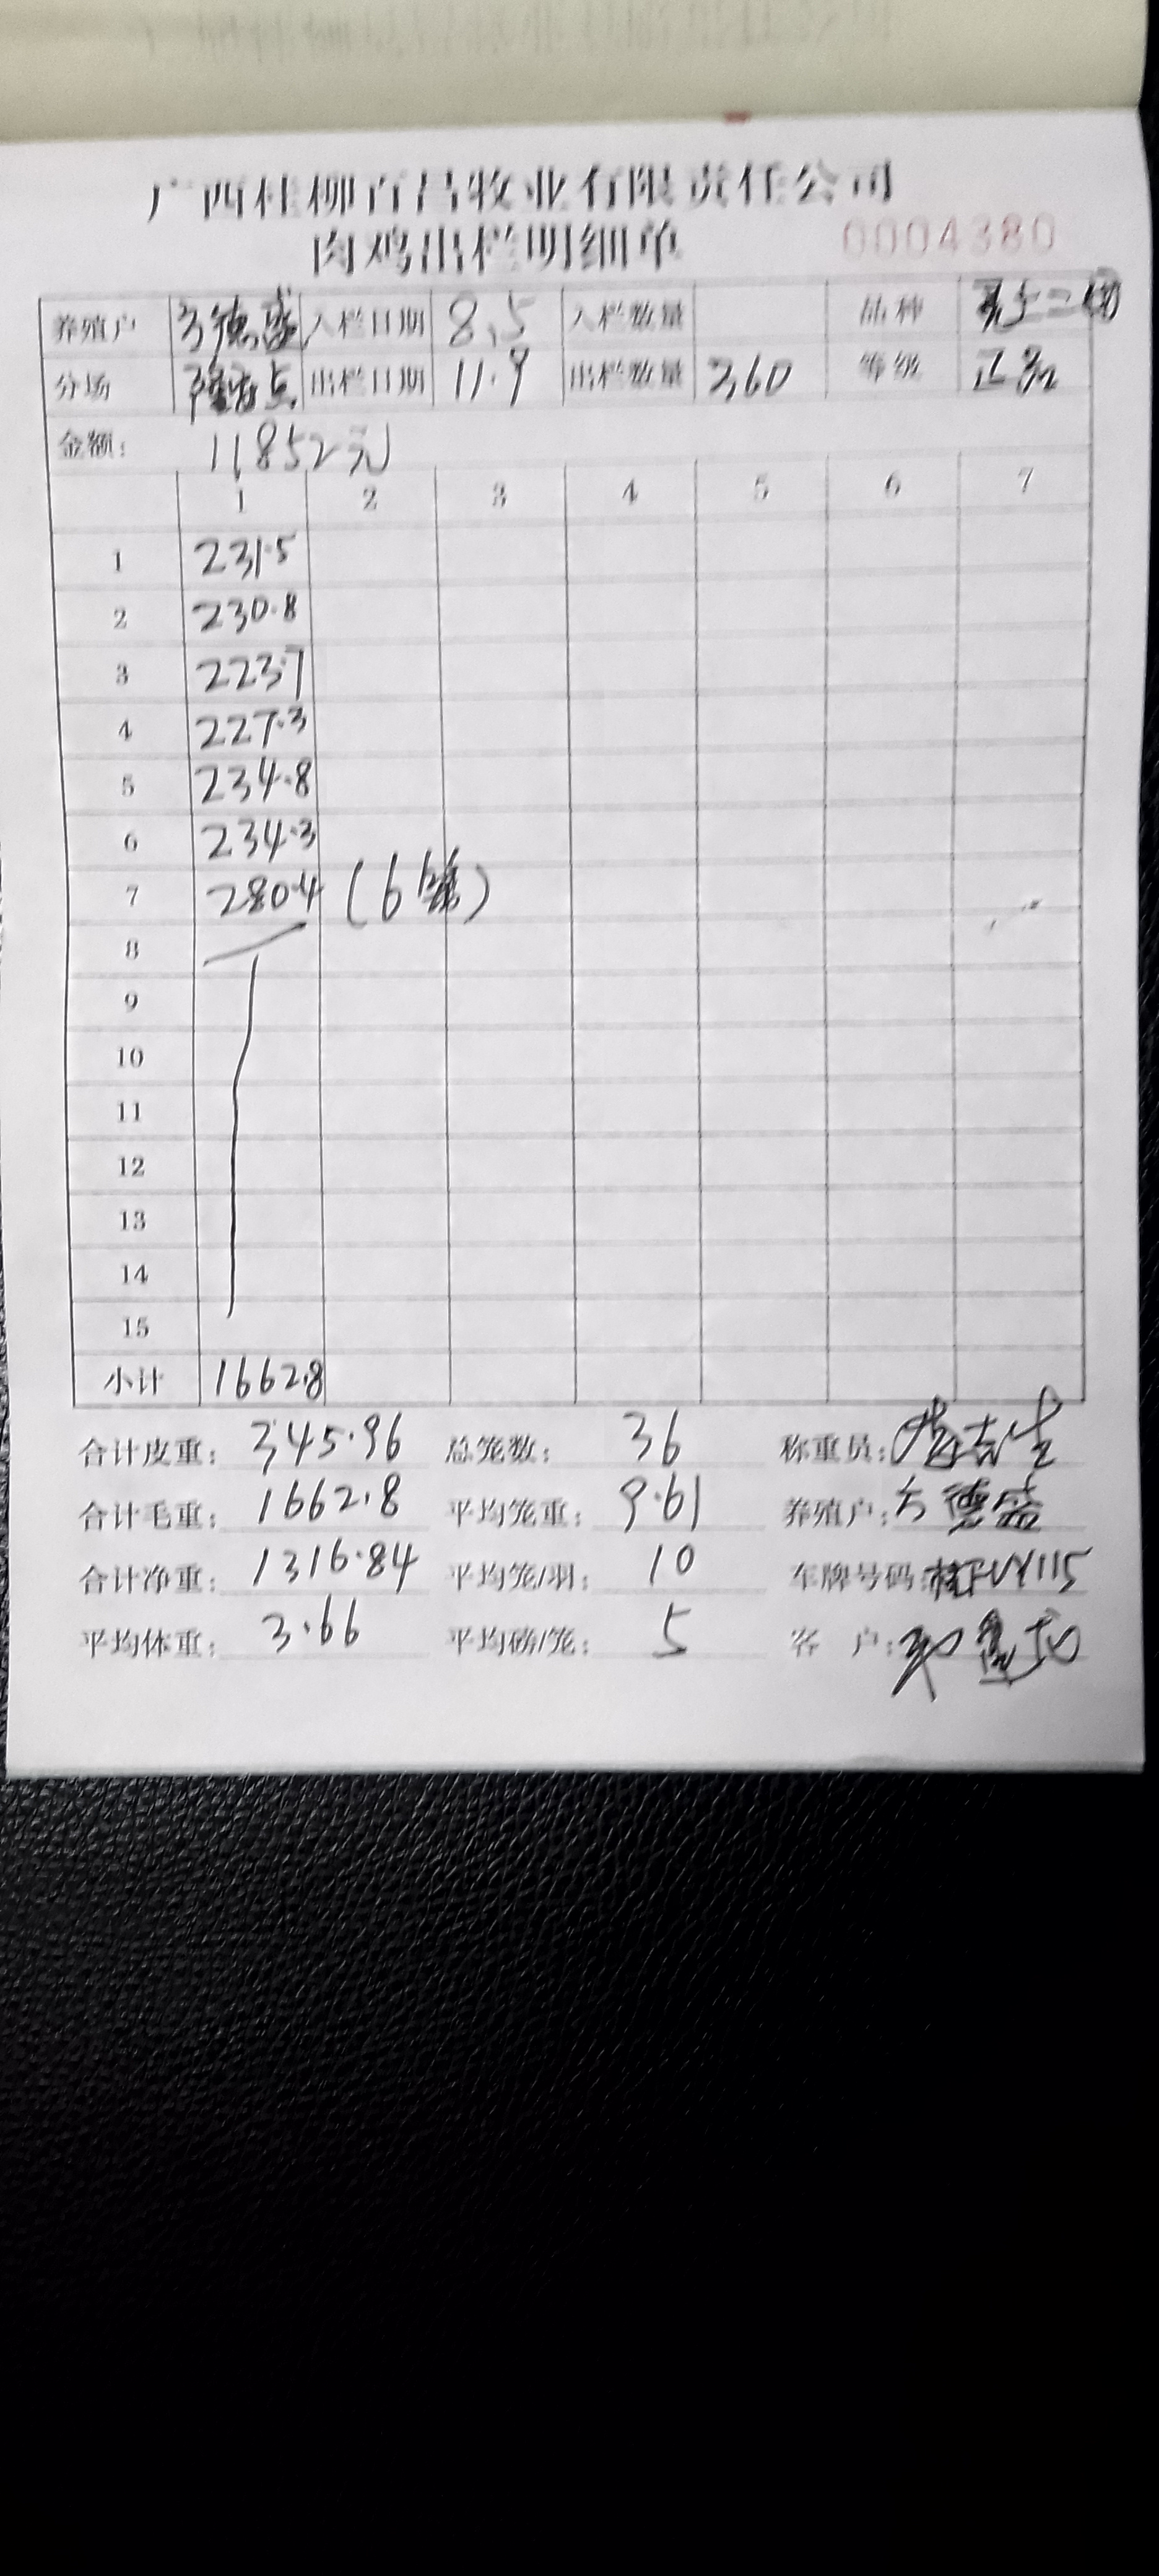 广西桂柳百昌牧业有限责任公司
肉鸡出栏明细单 0004380
养殖户 方德盛 入栏日期 8.5 入栏数量 品种
分场 出栏日期 11.9 出栏数量 360 等级 正品
金额: 11852元
1 2 3 4 5 6 7
1 231.5
2 230.8
3 223.7
4 227.3
5 234.8
6 234.3
7 280.4 (6笼)
8
9
10
11
12
13
14
15
小计 1662.8
合计皮重: 345.96 总笼数: 36 称重员:
合计毛重: 1662.8 平均笼重: 9.61 养殖户: 方德盛
合计净重: 1316.84 平均笼/羽: 10 车牌号码:
平均体重: 3.66 平均磅/笼: 5 客 户: